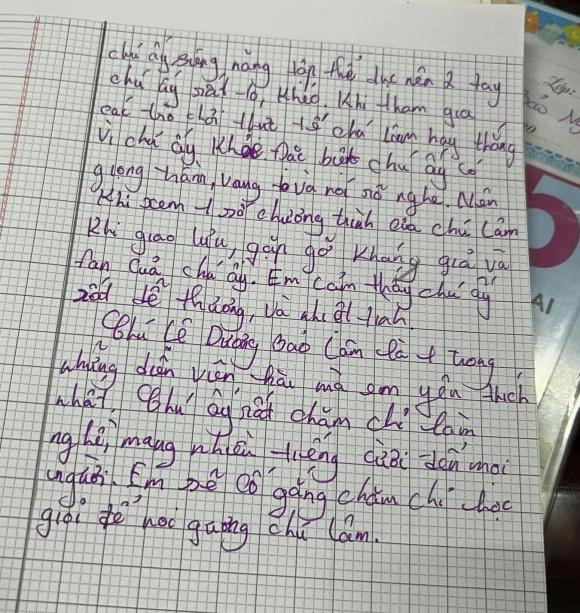 chú ấy siêng năng tập thể dục nên 2 tay
chú ấy rất to, khéo. Khi tham gia
các trò chơi thực tế chú Lâm hay thắng
vì chú ấy khỏe. Đặc biệt chú ấy có
giọng trầm, vang to và nói rõ nghe. Nên
khi xem 1 số chương trình của chú Lâm
khi giao lưu, gặp gỡ kháng giả và
fan của chú ấy. Em cảm thấy chú ấy
rất dễ thương, và nhiệt tình.
Chú Lê Dương Bảo Lâm là 1 trong
những diễn viên hài mà em yêu thích
nhất. Chú ấy rất chăm chỉ làm
nghề, mang nhiều tiếng cười đến mọi
người. Em sẽ cố gắng chăm chỉ học
giỏi để noi gương chú Lâm.
Lớp:
5
AI